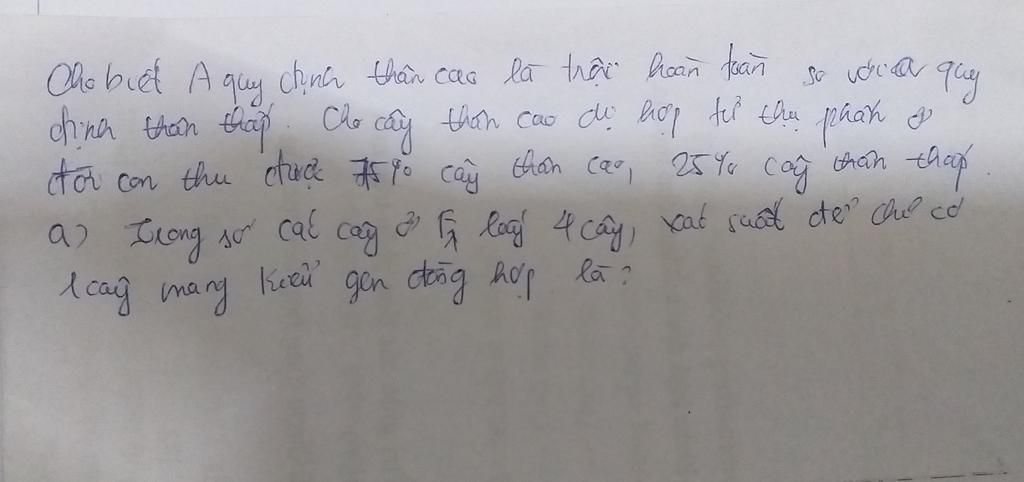 Cho biết A quy định thân cao là trội hoàn toàn so với a quy
định thân thấp. Cho cây thân cao dị hợp tử thụ phấn ở
đời con thu được 75% cây thân cao, 25% cây thân thấp.
a) Trong số các cây ở F1 lấy 4 cây, xác suất để chỉ có
1 cây mang kiểu gen đồng hợp là?